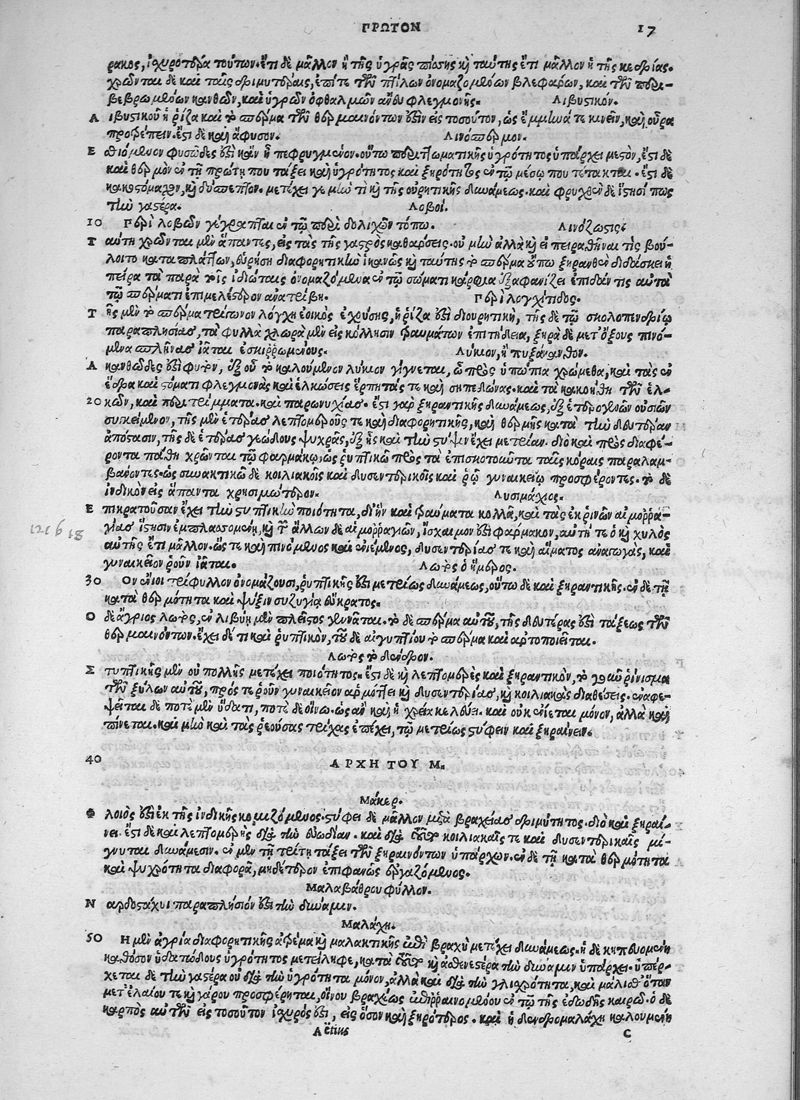 ΠΡΩΤΟΝ 17
ρακος, ἰσχυροτέρα τούτων. ἔτι δὲ μᾶλλον ἡ τῆς ὑγρᾶς πίσσης καὶ ταύτης ἔτι μᾶλλον ἡ τῆς κεδρίας.
χρῶνται δὲ καὶ ταῖς δριμυτέραις, ἐπί τε τῶν πτίλων ὀνομαζομένων βλεφάρων, καὶ τῶν περι-
βεβρωμένων κανθῶν, καὶ ὑγρῶν ὀφθαλμῶν ἄνευ φλεγμονῆς. Λιβυστικόν.
Λ ιβυστικοῦ ἡ ῥίζα καὶ τὸ σπέρμα τῶν θερμαινόντων ἐστὶν εἰς τοσοῦτον, ὡς ἔμμηνά τε κινεῖν, καὶ οὖρα
προτρέπειν. ἔστι δὲ καὶ ἄφυσον. Λινόσπερμον.
Ε σθιόμενον φυσῶδές ἐστι κἂν ᾖ πεφρυγμένον. οὕτω περιττωματικῆς ὑγρότητος ὑπάρχει μεστόν, ἔστι δὲ
καὶ θερμὸν ἐν τῇ πρώτῃ που τάξει καὶ ὑγρότητος καὶ ξηρότητος ἐν τῷ μέσῳ που τέτακται. ἔστι δὲ
κακοστόμαχον, καὶ δύσπεπτον. μετέχει γε μὴν τι καὶ τῆς οὐρητικῆς δυνάμεως. καὶ φρυχθὲν δὲ ἵστησί πως
τὴν γαστέρα. Λοβοί.
10 Περὶ λοβῶν γέγραπται ἐν τῷ περὶ δολίχων τόπῳ. Λινόζωστις
Τ αύτῃ χρῶνται μὲν ἅπαντες, εἰς τὰς τῆς γαστρὸς καθάρσεις. οὐ μὴν ἀλλὰ καὶ εἰ πειραθῆναί τις βού-
λοιτο καταπλάττων, εὑρήσει διαφορητικὴν ἱκανῶς καὶ ταύτης τὸ σπέρμα
πεῖρα τὰ παρὰ τοῖς ἰδιώταις ὀνομαζόμενα ἐν τῷ σώματι κάρφια ἐξαφανίζει ἐπειδάν τις αὐτὰ
τῷ σπέρματι ἐπιμελέστερον ἀνατρίβῃ. Περὶ λογχίτιδος.
Τ ῆς μὲν τὸ σπέρμα τρίγωνον λόγχῃ ἐοικὸς ἐχούσης, ἡ ῥίζα ἐστὶ διουρητική, τῆς δὲ τῷ σκολοπενδρίῳ
παραπλησίας, τὰ φύλλα χλωρὰ μὲν εἰς κόλλησιν τραυμάτων ἐπιτήδεια, ξηρὰ δὲ μετ' ὄξους πινό-
μενα σπλῆνας ἰᾶται ἐσκιρρωμένους. Λύκιον, ἢ πυξάκανθον.
Α κανθῶδές ἐστι φυτόν, ἐξ οὗ τὸ καλούμενον λύκιον γίγνεται, ᾧ πρὸς ὑπώπια χρώμεθα, καὶ τὰς ἐν
ἕδρᾳ καὶ στόματι φλεγμονὰς καὶ ἑλκώσεις ἕρπητάς τε καὶ σηπεδόνας. καὶ τὰ κακοήθη τῶν ἑλ-
20 κῶν, καὶ παρατρίμματα. καὶ παρωνυχίας. ἔστι γὰρ ξηραντικῆς δυνάμεως, ἐξ ἑτερογενῶν οὐσιῶν
συγκείμενον, τῆς μὲν ἑτέρας λεπτομεροῦς τε καὶ διαφορητικῆς, καὶ θερμῆς κατὰ τὴν δευτέραν
ἀπόστασιν, τῆς δὲ ἑτέρας γεώδους ψυχρᾶς, ἐξ ἧς καὶ τὴν στύψιν ἔχει μετρίαν. διὸ καὶ πρὸς διαφέ-
ροντα πάθη χρῶνται τῷ φαρμάκῳ, ὡς ῥυπτικῷ πρὸς τὰ ἐπισκοτοῦντα ταῖς κόραις παραλαμ-
βάνοντες. ὡς συνακτικῷ δὲ κοιλιακοῖς καὶ δυσεντερικοῖς καὶ ῥῷ γυναικείῳ προσφέροντες. τὸ δὲ
ἰνδικὸν εἰς ἅπαντα χρησιμώτερον. Λυσιμάχιος.
Ε πικρατοῦσαν ἔχει τὴν στυπτικὴν ποιότητα, δι' ἣν καὶ τραύματα κολλᾷ, καὶ τὰς ἐκ ῥινῶν αἱμορρα-
γίας ἵστησιν ἐμπλασσομένη, καὶ τῶν ἄλλων δὲ αἱμορραγιῶν, ἴσχαιμόν ἐστι φάρμακον, αὐτή τε ὁ καὶ χυλὸς
αὐτῆς ἔτι μᾶλλον. ὥς τε καὶ πινόμενος καὶ ἐνιέμενος, δυσεντερίας τε καὶ αἵματος ἀναγωγάς, καὶ
γυναικεῖον ῥοῦν ἰᾶται. Λωτὸς ὁ ἥμερος.
30 Ὃν ἔνιοι τρίφυλλον ὀνομάζουσι, ῥυπτικῆς ἐστι μετρίως δυνάμεως, οὕτω δὲ καὶ ξηραντικῆς. ἐν δὲ τῇ
κατὰ θερμότητα καὶ ψύξιν συζυγίᾳ εὔκρατος.
Ο δὲ ἄγριος λωτός, ἐν λιβύῃ μὲν πλεῖστος γεννᾶται. τὸ δὲ σπέρμα αὐτοῦ, τῆς δευτέρας ἐστὶ τάξεως τῶν
θερμαινόντων. ἔχει δέ τι καὶ ῥυπτικόν, τοῦ δὲ αἰγυπτίου τὸ σπέρμα καὶ ἀρτοποιεῖται.
Λωτὸς τὸ δένδρον.
Σ τυπτικῆς μὲν οὐ πολλῆς μετέχει ποιότητος. ἔστι δὲ καὶ λεπτομερὲς καὶ ξηραντικόν, τὸ γοῦν ῥίνισμα
τῶν ξύλων αὐτοῦ, πρός τε ῥοῦν γυναικεῖον ἁρμόττει καὶ δυσεντερίας, καὶ κοιλιακὰς διαθέσεις. ἐναφε-
ψεῖται δὲ ποτὲ μὲν ὕδατι, ποτὲ δὲ οἴνῳ. ὡς ἂν καὶ ἡ χρεία κελεύῃ. καὶ οὐκ ἐνίεται μόνον, ἀλλὰ καὶ
πίνεται. καὶ μὴν καὶ τὰς ῥεούσας τρίχας ἐπέχει, τῷ μετρίως στύφειν καὶ ξηραίνειν.
40 ΑΡΧΗ ΤΟΥ Μ.
Μάκερ.
Φ λοιός ἐστι ἐκ τῆς ἰνδικῆς κομιζόμενος. στύφει δὲ μᾶλλον μετὰ βραχείας δριμύτητος. διὸ καὶ ξηραί-
νει. ἔστι δὲ καὶ λεπτομερὴς διὰ τὴν εὐωδίαν. καὶ διὰ τοῦτο κοιλιακαῖς τε καὶ δυσεντερικαῖς μί-
γνυται δυνάμεσιν. ἐν μὲν τῇ τρίτῃ τάξει τῶν ξηραινόντων ὑπάρχων. ἐν δὲ τῇ κατὰ θερμότητα
καὶ ψυχρότητα διαφορᾷ, μηδέτερον ἐπιφανῶς ἐργαζόμενος.
Μαλαβάθρου φύλλον.
Ν αρδοστάχυι παραπλήσιόν ἐστι τὴν δύναμιν.
Μαλάχη.
50 Η μὲν ἀγρία διαφορητικῆς ἀτρέμα καὶ μαλακτικῆς ἐπὶ βραχὺ μετέχει δυνάμεως. ἡ δὲ κηπευομένη
καθόσον ὑδατώδους ὑγρότητος μετείληφε, κατὰ τοῦτο καὶ ἀσθενεστέρα τὴν δύναμιν ὑπάρχει. ὑπέρ-
χεται δὲ τὴν γαστέρα οὐ διὰ τὴν ὑγρότητα μόνον, ἀλλὰ καὶ διὰ τὴν γλισχρότητα, καὶ μάλισθ' ὅταν
μετ' ἐλαίου τε καὶ γάρου προσφέρηται, οἴνου βραχέως ἐπιρραινομένου ἐν τῷ τῆς ἐδωδῆς καιρῷ. ὁ δὲ
καρπὸς αὐτῶν εἰς τοσοῦτον ἰσχυρός ἐστι, εἰς ὅσον καὶ ξηρότερος. καὶ ἡ δενδρομαλάχη καλουμένη
Aëtius C